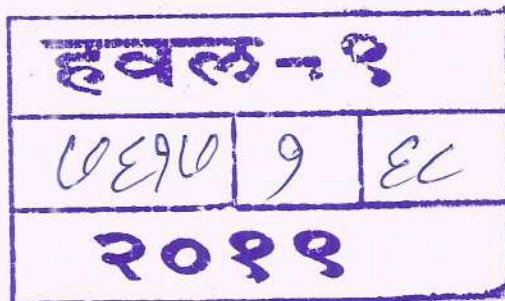 हवल-१
७६१७ १ ६८
२०११